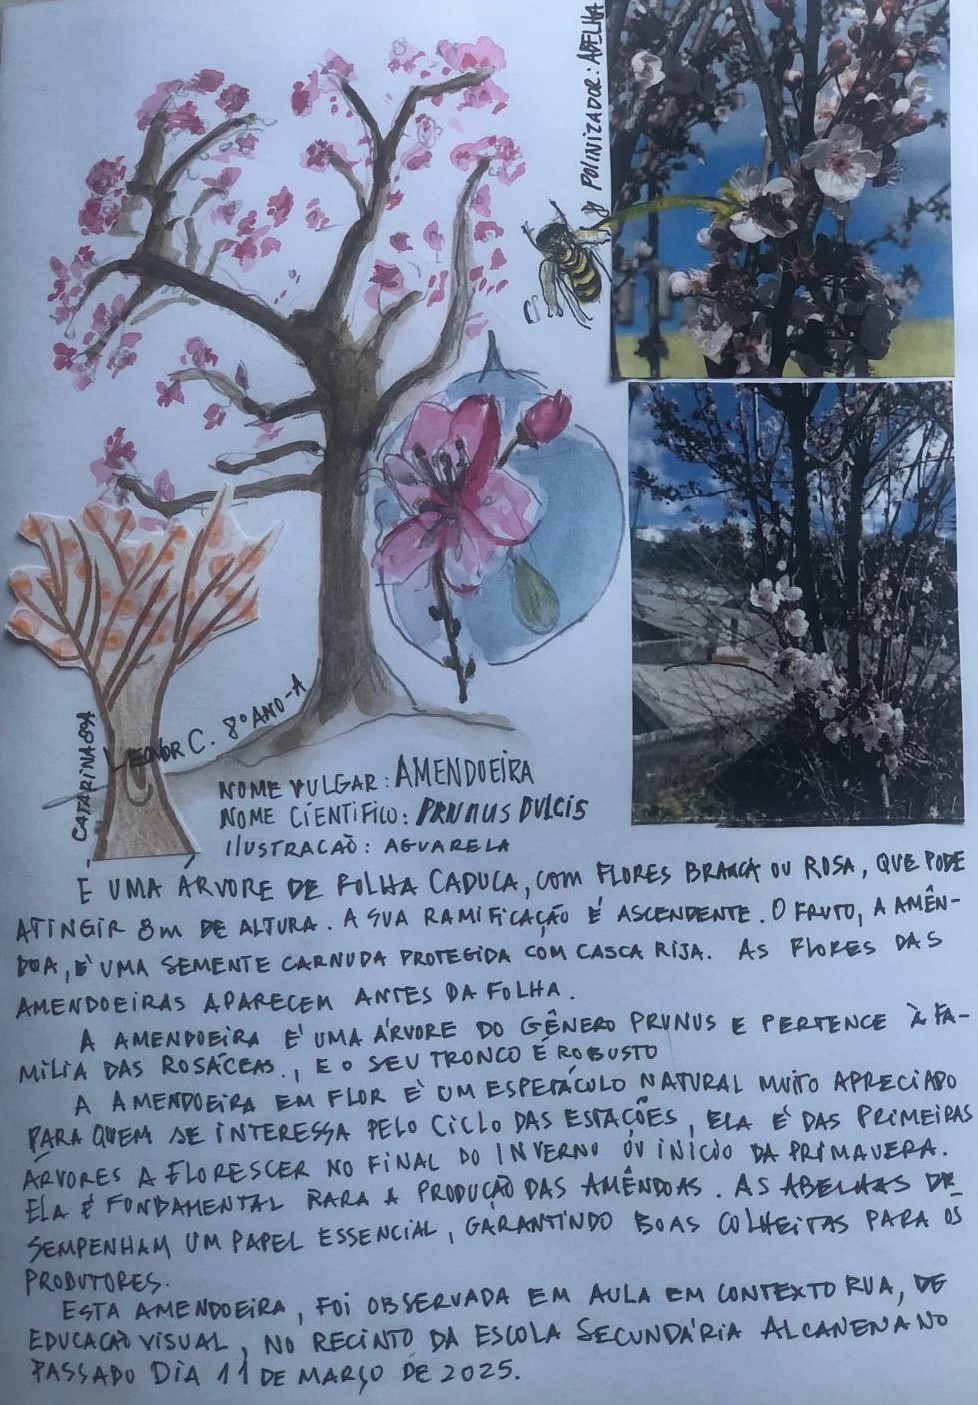 POLINIZADOR: ABELHA
CATARINA 8ºA
LEONOR C. 8º ANO-A
NOME VULGAR: AMENDOEIRA
NOME CIENTIFICO: PRUNUS DULCIS
ILUSTRACAÕ: AGUARELA
É UMA ÁRVORE DE FOLHA CADUCA, COM FLORES BRANCA OU ROSA, QUE PODE
ATINGIR 8m DE ALTURA. A SUA RAMIFICAÇÃO É ASCENDENTE. O FRUTO, A AMÊN-
DOA, É UMA SEMENTE CARNUDA PROTEGIDA COM CASCA RIJA. AS FLORES DAS
AMENDOEIRAS APARECEM ANTES DA FOLHA.
A AMENDOEIRA É UMA ÁRVORE DO GÊNERO PRUNUS E PERTENCE À FA-
MILIA DAS ROSÁCEAS., E O SEU TRONCO É ROBUSTO
A AMENDOEIRA EM FLOR É UM ESPETÁCULO NATURAL MUITO APRECIADO
PARA QUEM SE INTERESSA PELO CICLO DAS ESTAÇÕES, ELA É DAS PRIMEIRAS
ÁRVORES A FLORESCER NO FINAL DO INVERNO OU INÍCIO DA PRIMAVERA.
ELA É FUNDAMENTAL PARA A PRODUÇÃO DAS AMÊNDOAS. AS ABELHAS DE-
SEMPENHAM UM PAPEL ESSENCIAL, GARANTINDO BOAS COLHEITAS PARA OS
PRODUTORES.
ESTA AMENDOEIRA, FOI OBSERVADA EM AULA EM CONTEXTO RUA, DE
EDUCAÇÃO VISUAL, NO RECINTO DA ESCOLA SECUNDÁRIA ALCANENA NO
PASSADO DIA 11 DE MARÇO DE 2025.